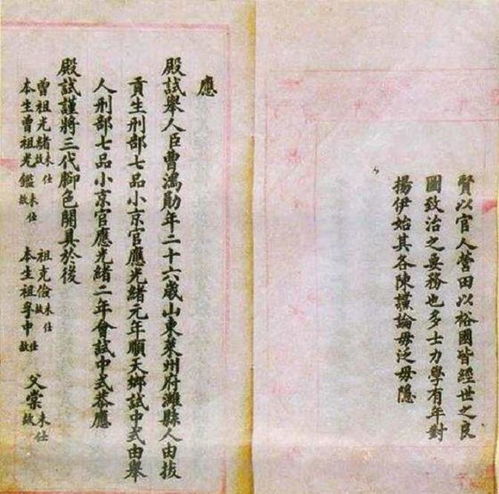 賢以官人營田以裕國皆經世之良
圖致治之要務也多士力學有年對
揚伊始其各陳讜論毋泛毋隱
應
殿試舉人臣曹鴻勛年二十六歲山東萊州府濰縣人由拔
貢生刑部七品小京官應光緒元年順天鄉試中式由舉
人刑部七品小京官應光緒二年會試中式恭應
殿試謹將三代腳色開具於後
曾祖光緒未仕故 祖克儉未仕故
本生曾祖光鑑未仕故 本生祖孚中仕故
父棠未仕故